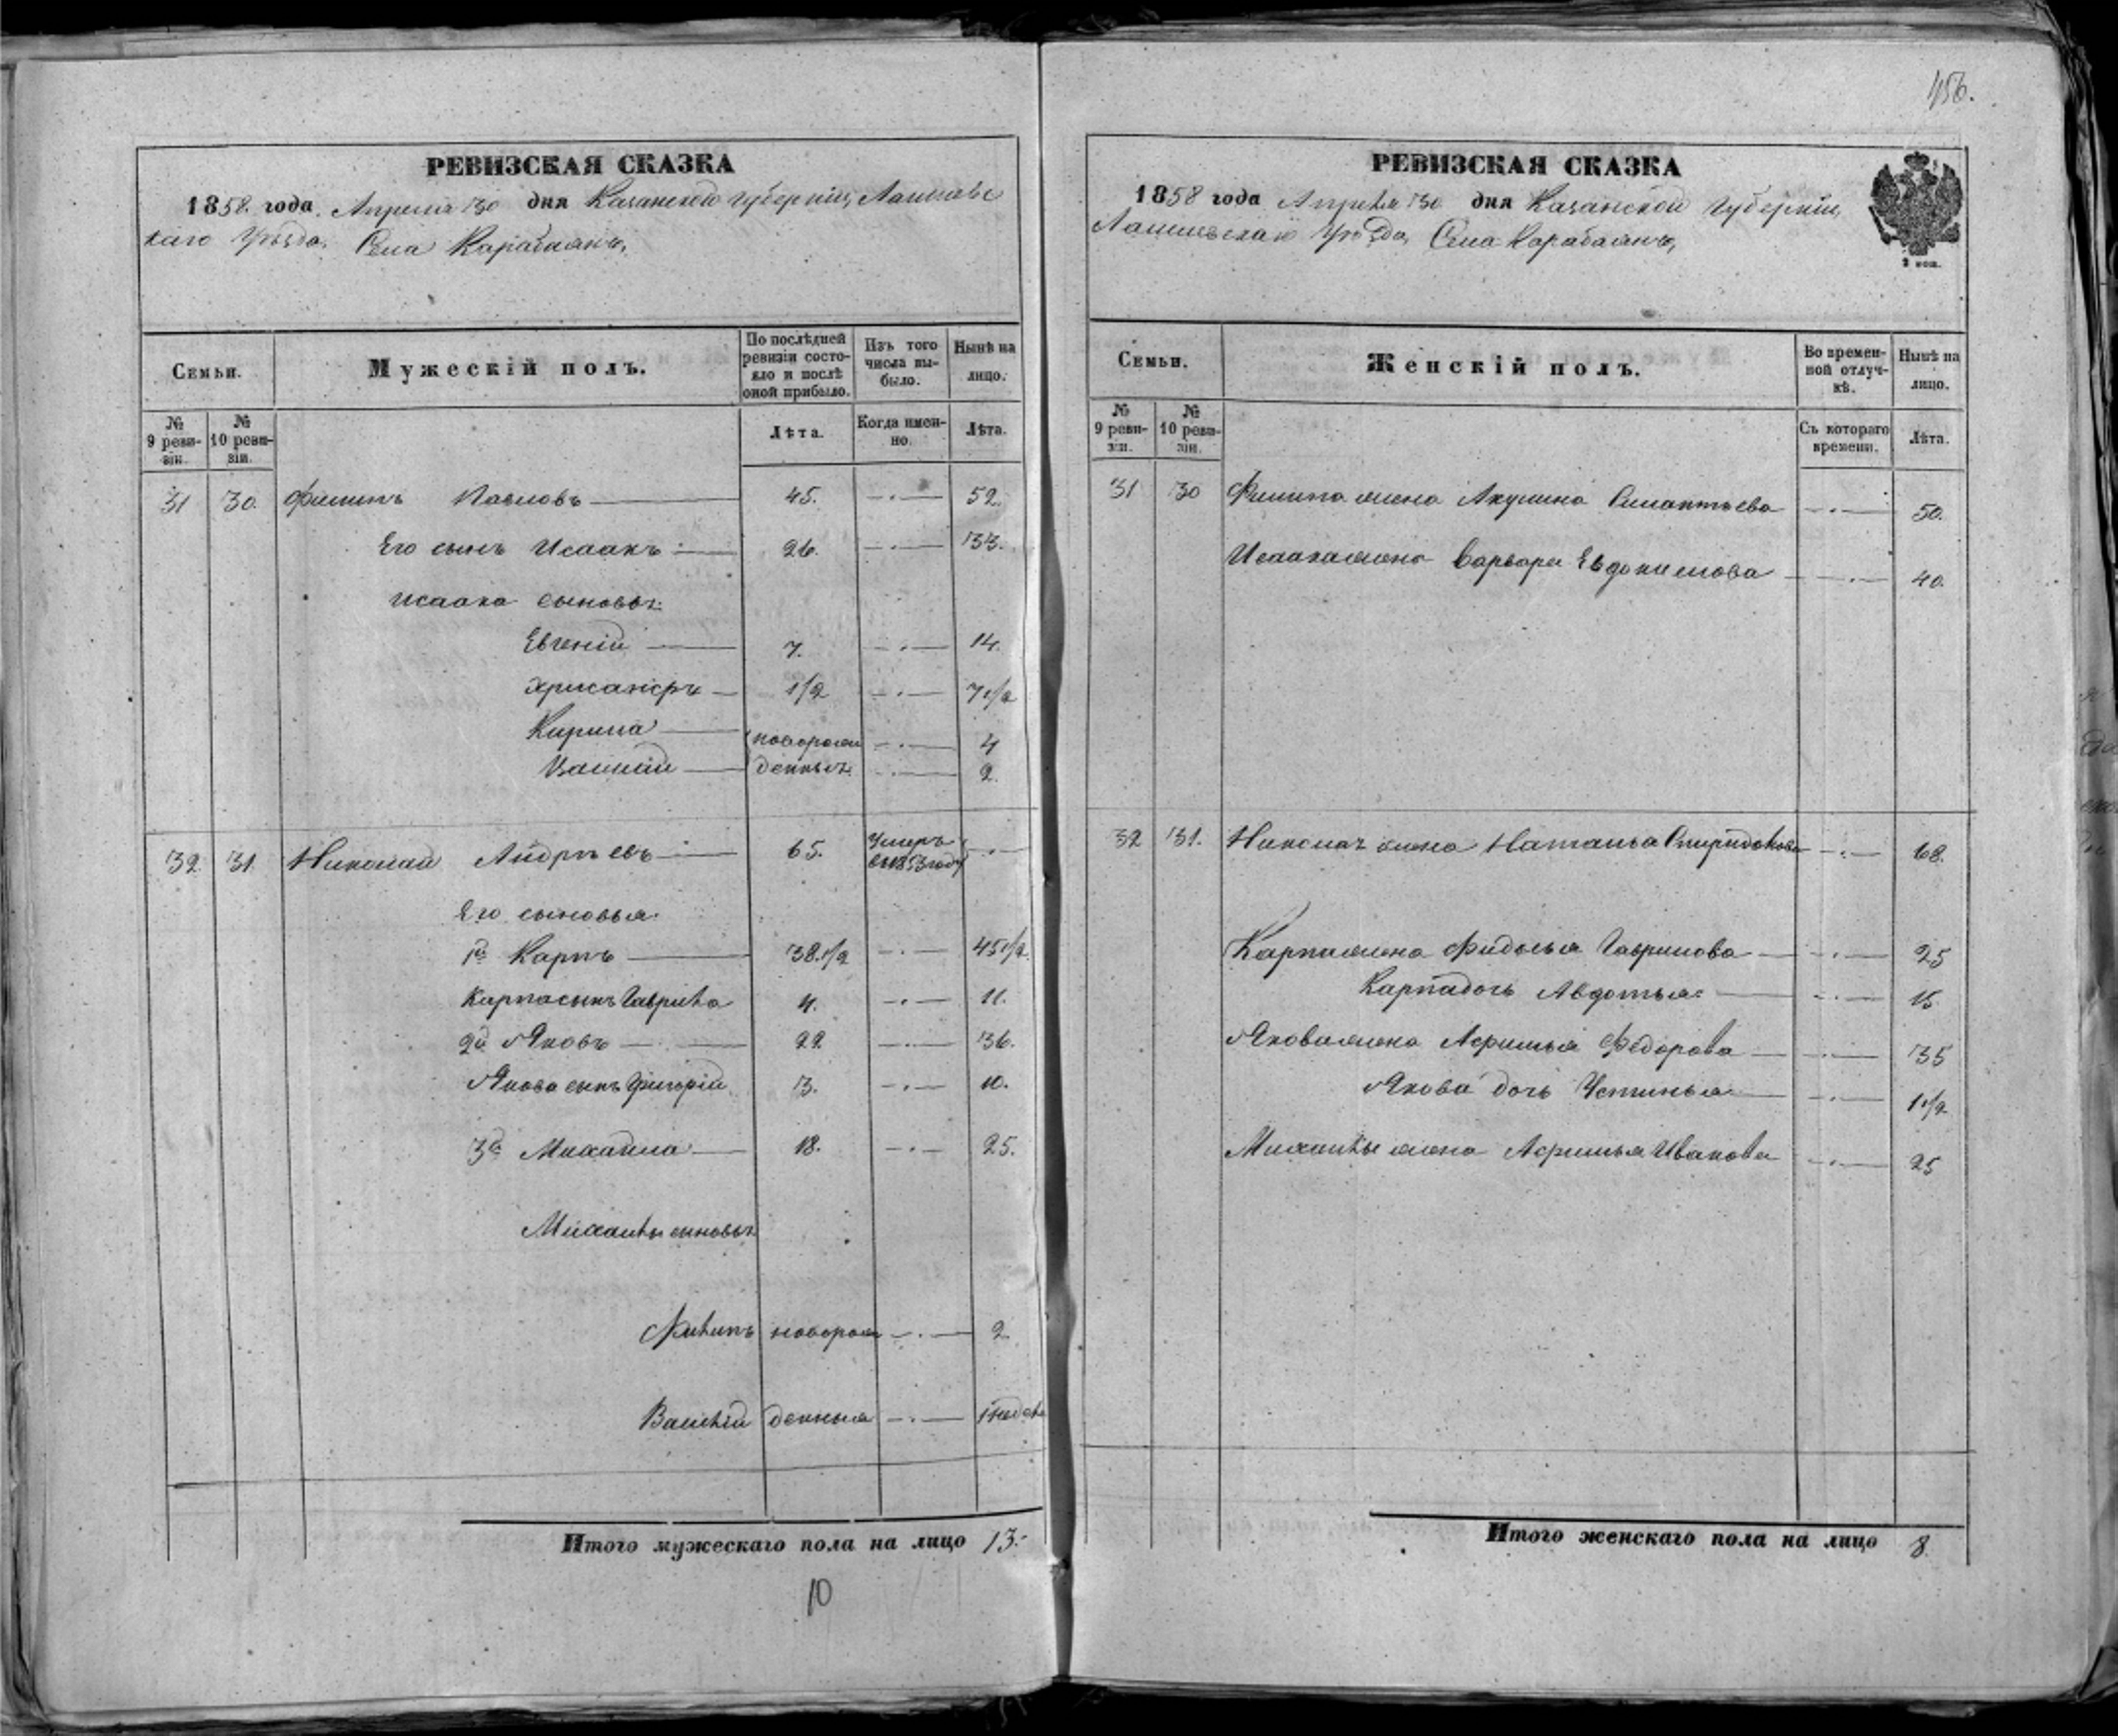 РЕВИЗСКАЯ СКАЗКА
1858. года. Апреля 30 дня Казанской губерніи, Лаишевс
каго Уѣзда. Села Карабаянъ,
Семьи.
Мужескій полъ.
По послѣдней ревизіи состояло и послѣ оной прибыло.
Изъ того числа выбыло.
Нынѣ на лицо.
№ 9 ревизіи.
№ 10 ревизіи.
Лѣта.
Когда именно.
Лѣта.
31 30. Филипъ Павловъ 45. 52.
Его сынъ Исаакъ 26. 33.
Исаака сыновья:
Евгеній 7. 14.
Хрисанфъ 1/2 7 1/2
Кирила новорож 4
Василій денные 2.
32 31. Николай Андрѣевъ 65. Умеръ
въ 1853 году
Его сыновья.
1й Карпъ 38.1/2 45 1/2
Карпа сынъ Гаврила 4. 11.
2й Яковъ 22 36.
Якова сынъ Григорій 3. 10.
3й Михайла 18. 25.
Михайлы сыновья
Филипъ новорож 2
Василій денныя 1 недель
Итого мужескаго пола на лицо 13.
10
156.
РЕВИЗСКАЯ СКАЗКА
1858 года Апреля 30 дня Казанской губерніи,
Лаишевскаго Уѣзда, Села Карабаянъ,
3 коп.
Семьи.
Женскій полъ.
Во временной отлучкѣ.
Нынѣ на лицо.
№ 9 ревизіи.
№ 10 ревизіи.
Съ котораго времени.
Лѣта.
31 30 Филипа жена Акулина 50.
Исаака жена Варвара Евдокимова 40.
32 31. Николая жена Наталья Спиридонова 68.
Карпа жена Фидосья Гаврилова 25
Карпа дочь Авдотья 15.
Якова жена Афимья Федорова 35
Якова дочь Устинья 1 1/2
Михайлы жена Афимья Иванова 25
Итого женскаго пола на лицо 8.